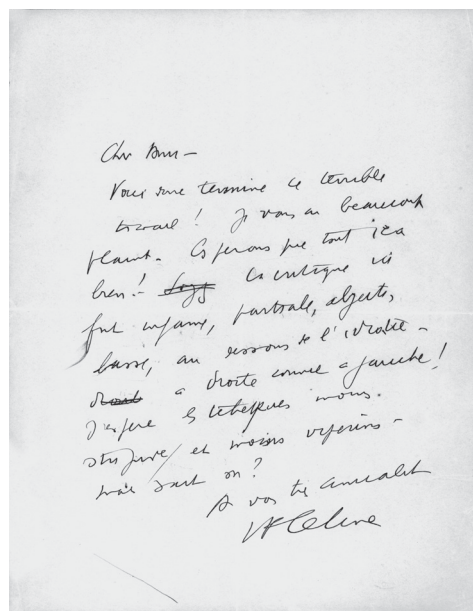 Cher Ami –
Voici terminé ce terrible
travail ! Je vous ai beaucoup
plaint. Espérons que tout ira
bien ! La critique ici
fut infâme, partiale, abjecte,
basse, au dessous de l'idiotie –
à droite comme à gauche !
J'espère les tchèques moins
et moins vipérins –
mais sait on ?
A vous très amicalement
LF Celine